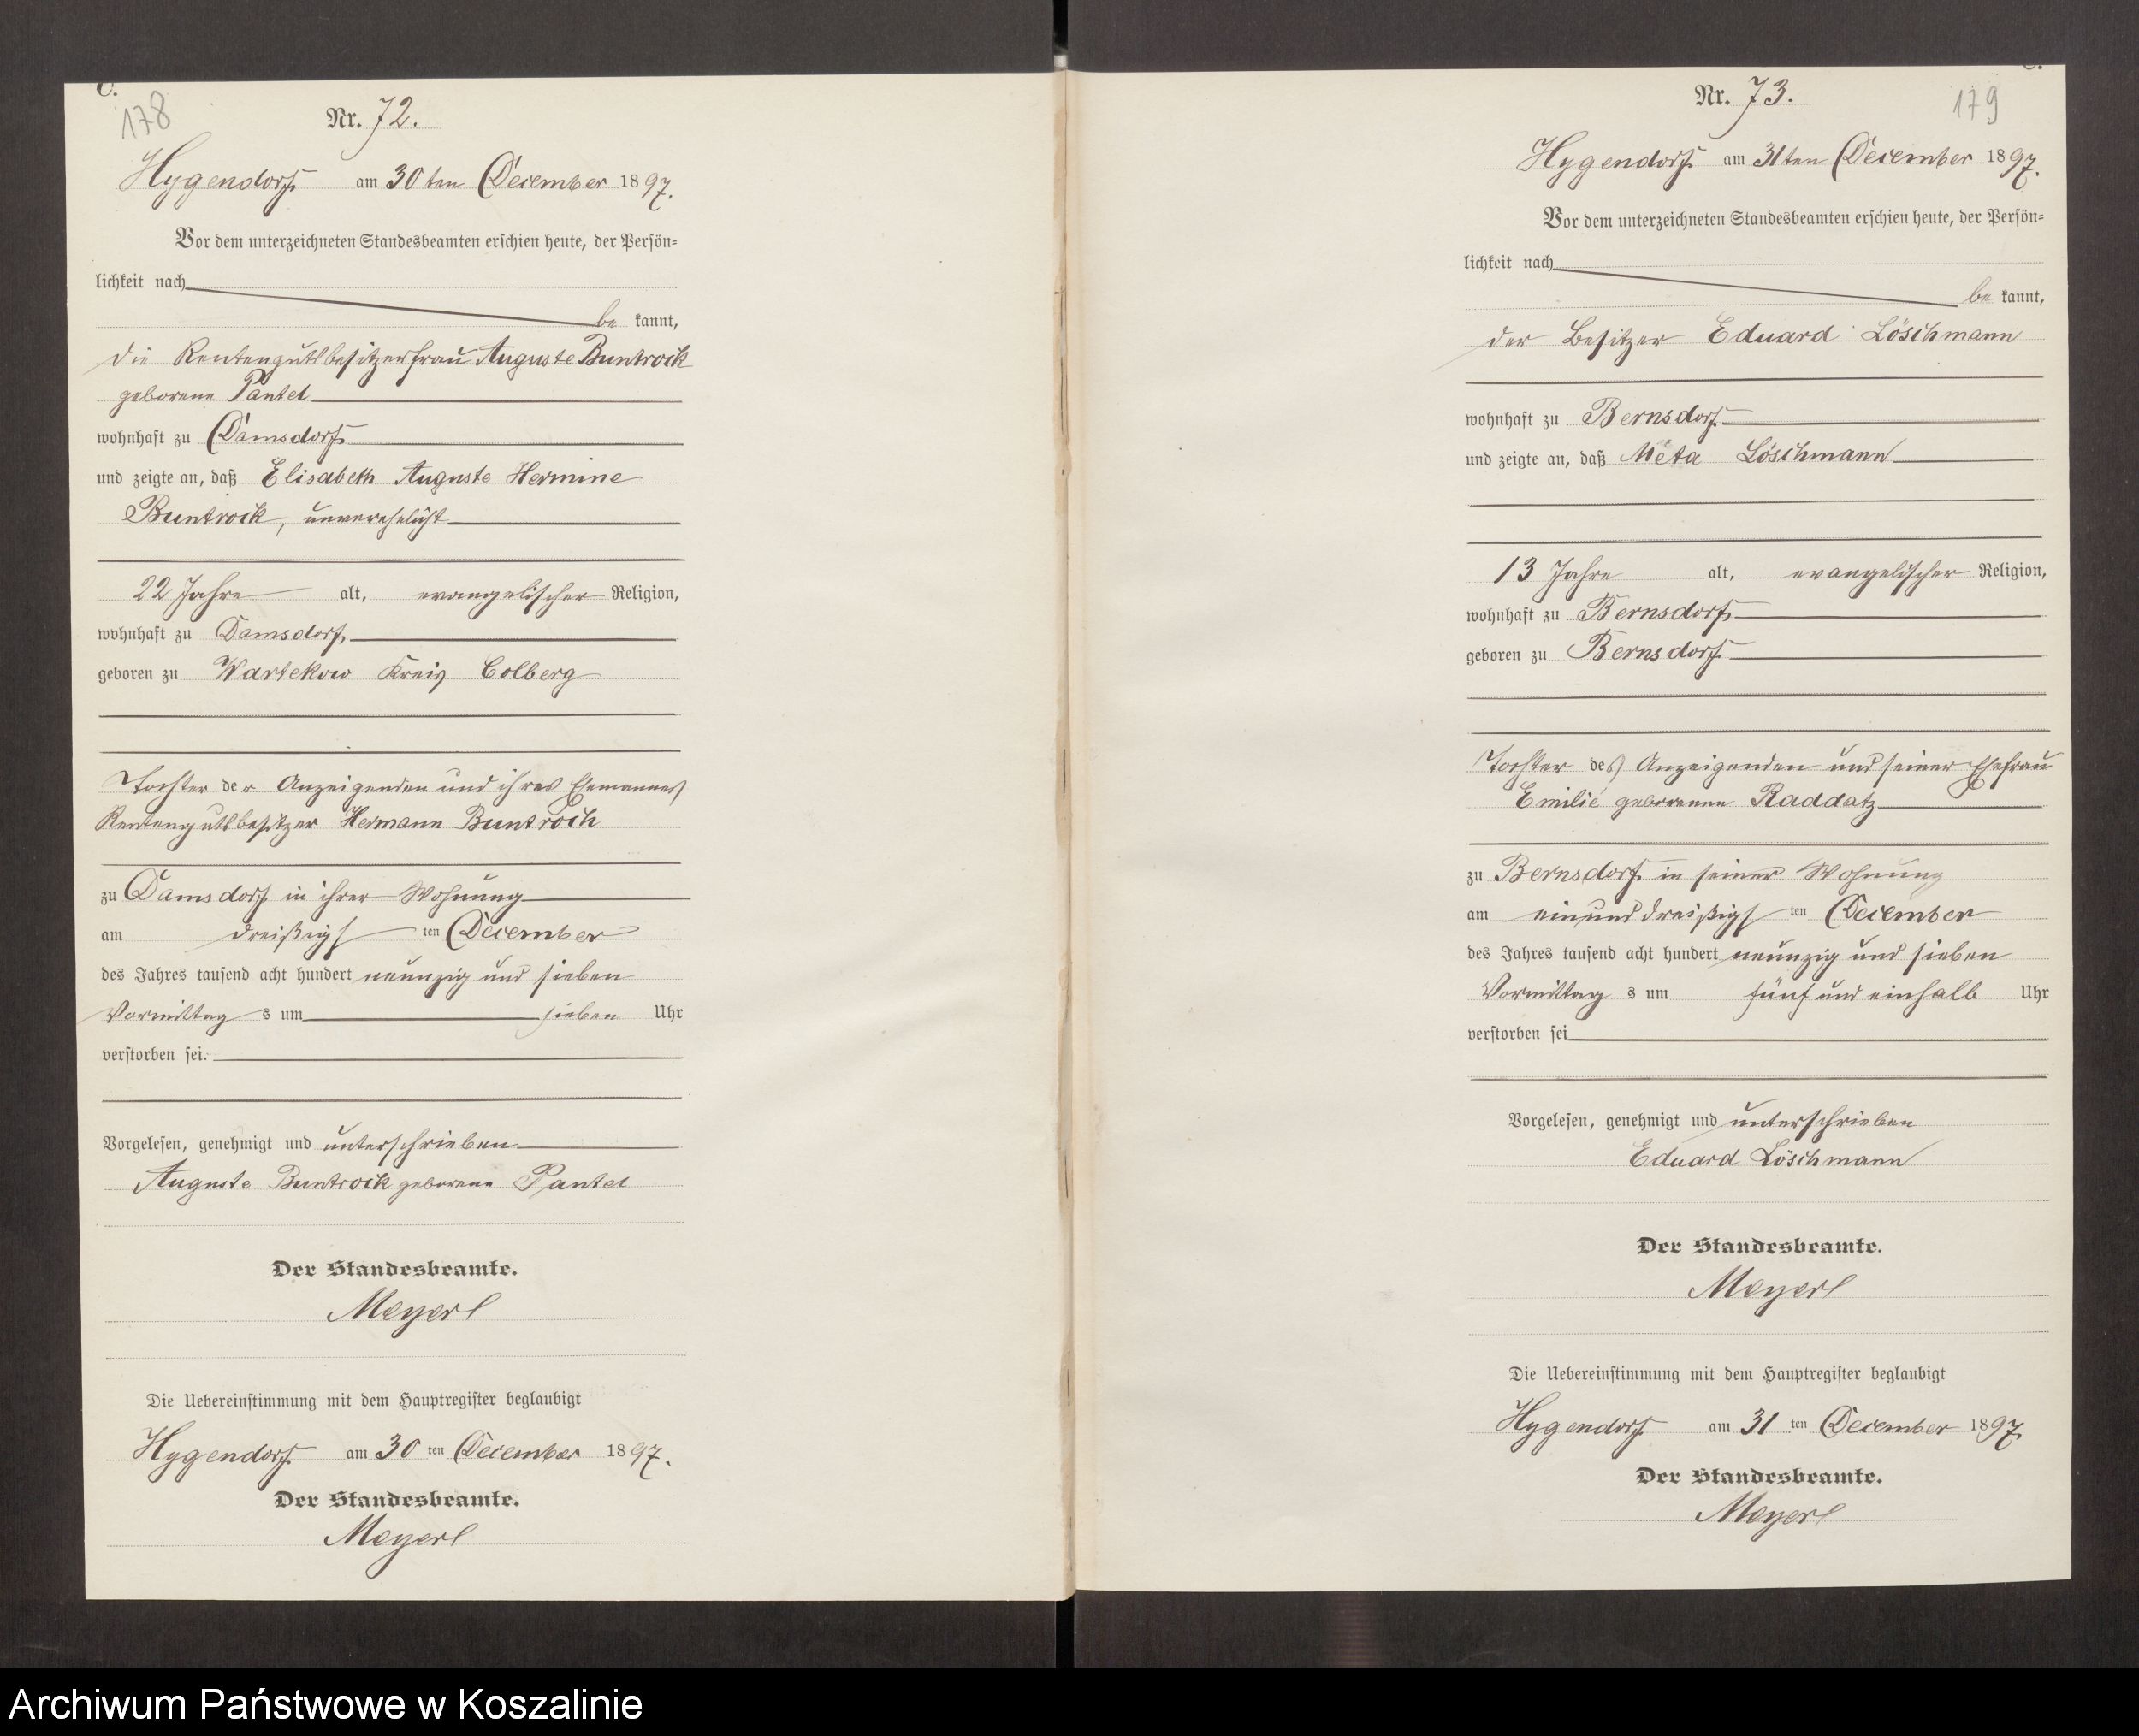 C.
178
Nr. 72.
Hygendorf am 30ten December 1897.
Vor dem unterzeichneten Standesbeamten erschien heute, der Persön-
lichkeit nach
be kannt,
die Rentengutsbesitzerfrau Auguste Buntrock
geborene Pantel
wohnhaft zu Damsdorf
und zeigte an, daß Elisabeth Auguste Hermine
Buntrock, unverehelicht
22 Jahre alt, evangelischer Religion,
wohnhaft zu Damsdorf
geboren zu Wartekow Kreis Colberg
Tochter der Anzeigenden und ihres Ehemannes
Rentengutsbesitzer Hermann Buntrock
zu Damsdorf in ihrer Wohnung
am dreißigs ten December
des Jahres tausend acht hundert neunzig und sieben
Vormittag s um sieben Uhr
verstorben sei.
Vorgelesen, genehmigt und unterschrieben
Auguste Buntrock geborene Pantel
Der Standesbeamte.
Meyerl
Die Uebereinstimmung mit dem Hauptregister beglaubigt
Hygendorf am 30 ten December 1897.
Der Standesbeamte.
Meyerl
179
Nr. 73.
Hygendorf am 31ten December 1897.
Vor dem unterzeichneten Standesbeamten erschien heute, der Persön-
lichkeit nach
be kannt,
der Besitzer Eduard Löschmann
wohnhaft zu Bernsdorf
und zeigte an, daß Meta Löschmann
13 Jahre alt, evangelischer Religion,
wohnhaft zu Bernsdorf
geboren zu Bernsdorf
Tochter des Anzeigenden und seiner Ehefrau
Emilie geborenen Raddatz
zu Bernsdorf in seiner Wohnung
am einunddreißigs ten December
des Jahres tausend acht hundert neunzig und sieben
Vormittag s um fünf und einhalb Uhr
verstorben sei
Vorgelesen, genehmigt und unterschrieben
Eduard Löschmann
Der Standesbeamte.
Meyerl
Die Uebereinstimmung mit dem Hauptregister beglaubigt
Hygendorf am 31 ten December 1897.
Der Standesbeamte.
Meyerl
Archiwum Państwowe w Koszalinie